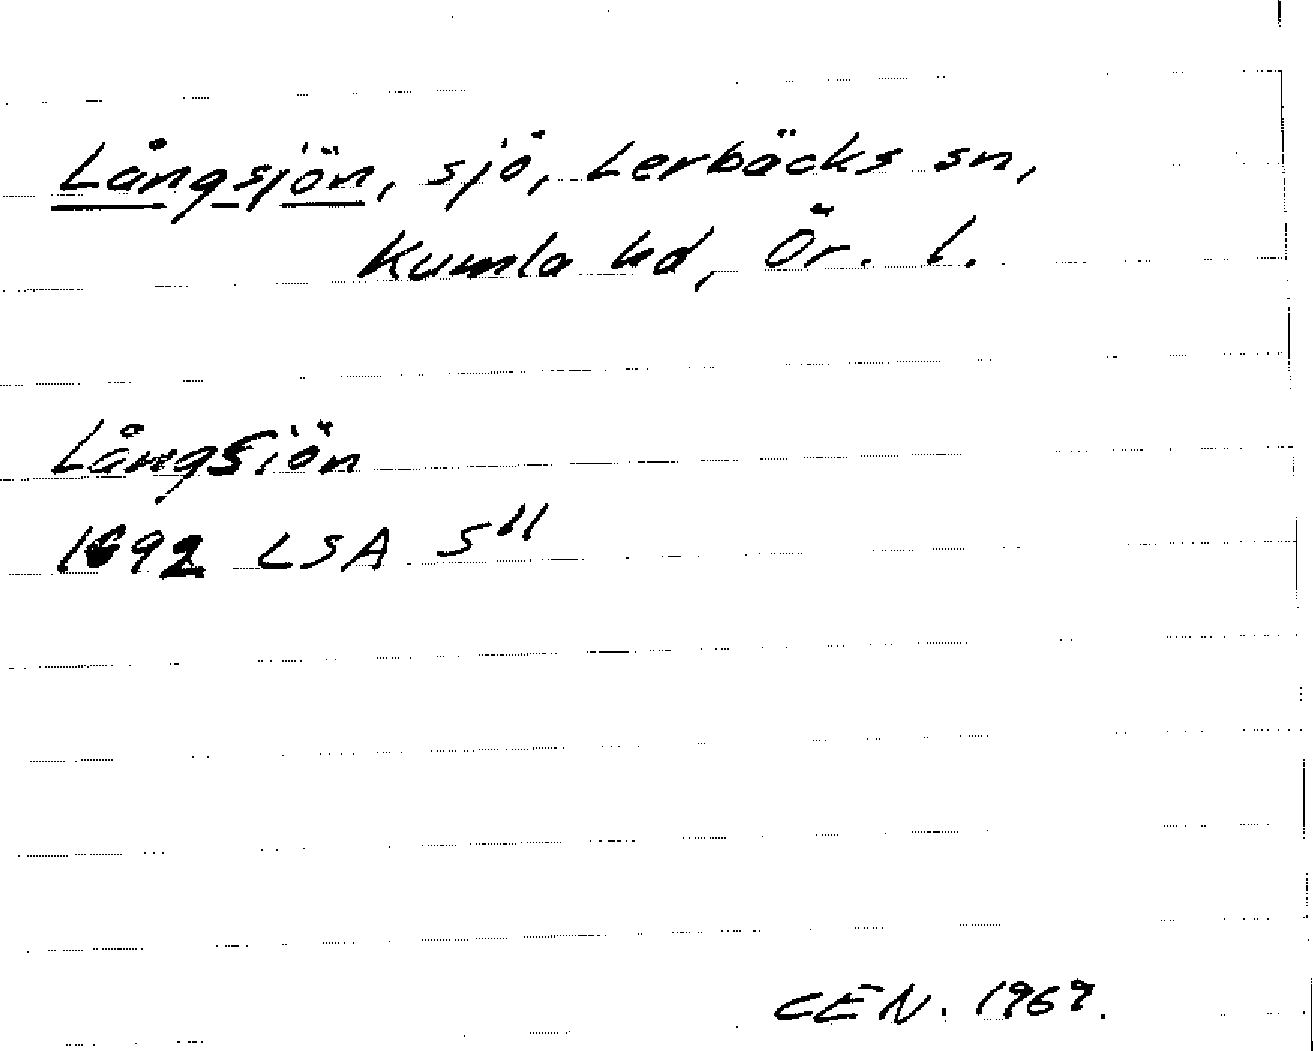 Långsjön, sjö, Lerbäcks sn,
Kumla hd, Ör. l.
Långsiön
1692 LSA S 11
CEN. 1969.